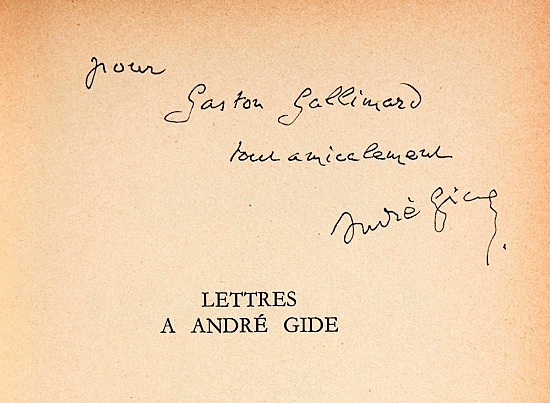 pour
Gaston Gallimard
tout amicalement
André Gide
LETTRES
A ANDRÉ GIDE